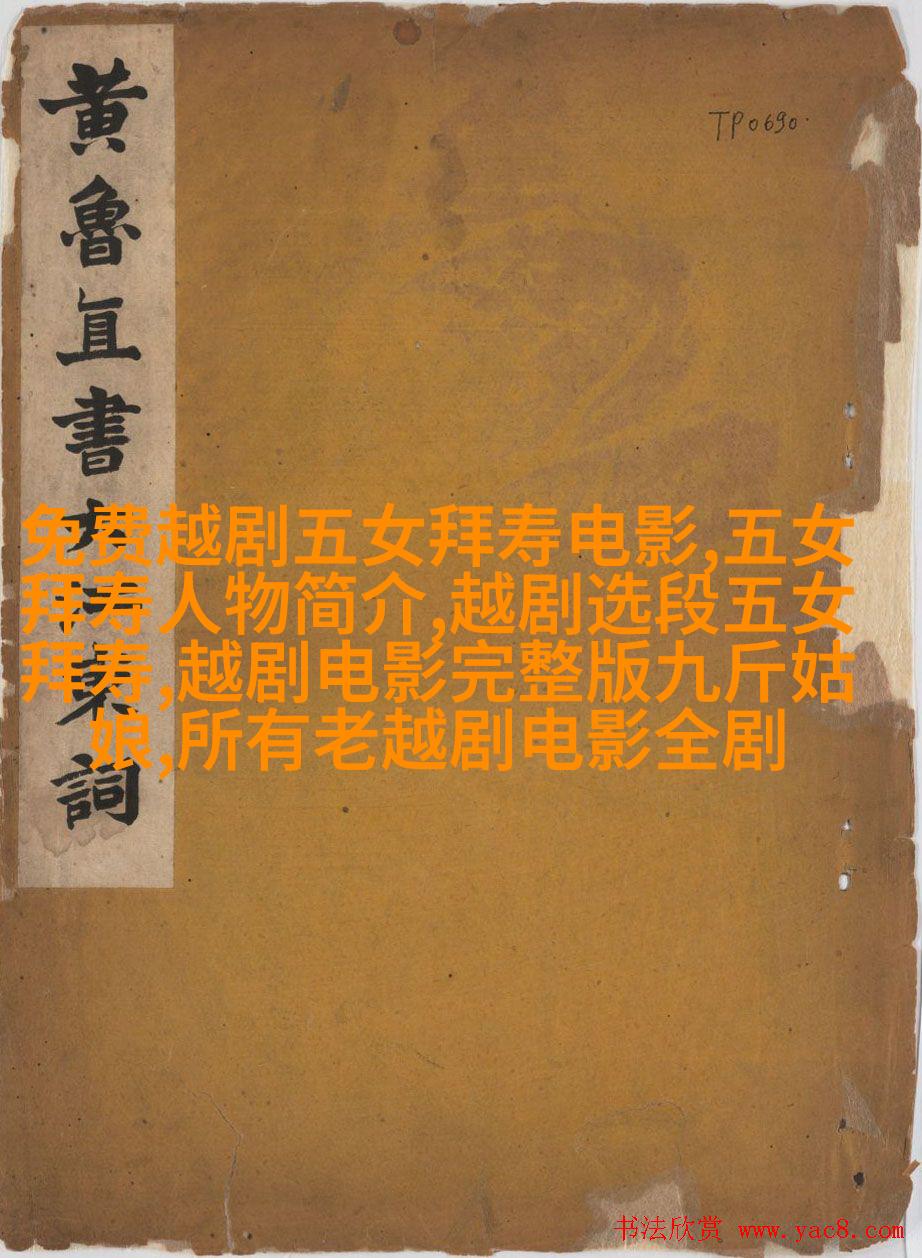 黄魯直書大江東詞
TP0690
免费越剧五女拜寿电影,五女
拜寿人物简介,越剧选段五女
拜寿,越剧电影完整版九斤姑
娘,所有老越剧电影全剧
书法欣赏 www.yac8.com